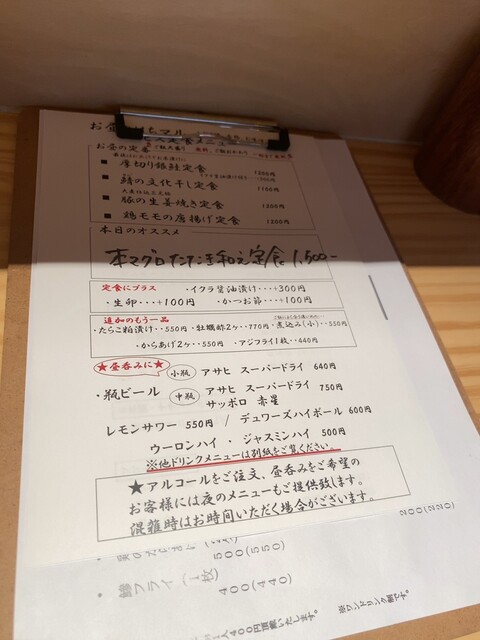 お昼の定番
■ 厚切り銀鮭定食
■ 鯖の文化干し定食 1100円
■ 豚の生姜焼き定食 1200円
■ 鶏モモの唐揚げ定食 1200円
本日のオススメ
本マグロたたき和え定食 1,500-
定食にプラス ・イクラ醤油漬け・・・+300円
・生卵・・・+100円 ・かつお節・・・+100円
追加のもう一品
・たらこ粕漬け・・550円 ・牡蠣酢2ヶ・・770円 ・煮込み(小)・・550円
・からあげ2ヶ・・550円 ・アジフライ1枚・・440円
★昼呑みに★
・瓶ビール
小瓶 アサヒ スーパードライ 640円
中瓶 アサヒ スーパードライ 750円
サッポロ 赤星
レモンサワー 550円 / デュワーズハイボール 600円
ウーロンハイ ・ ジャスミンハイ 500円
※他ドリンクメニューは別紙をご覧ください。
★アルコールをご注文、昼呑みをご希望の
お客様には夜のメニューもご提供致します。
混雑時はお時間いただく場合がございます。
200(220)
500(550)
・鯵フライ(1枚) 400(440)
1人400円頂戴いたします。
※ワンドリンク制です。